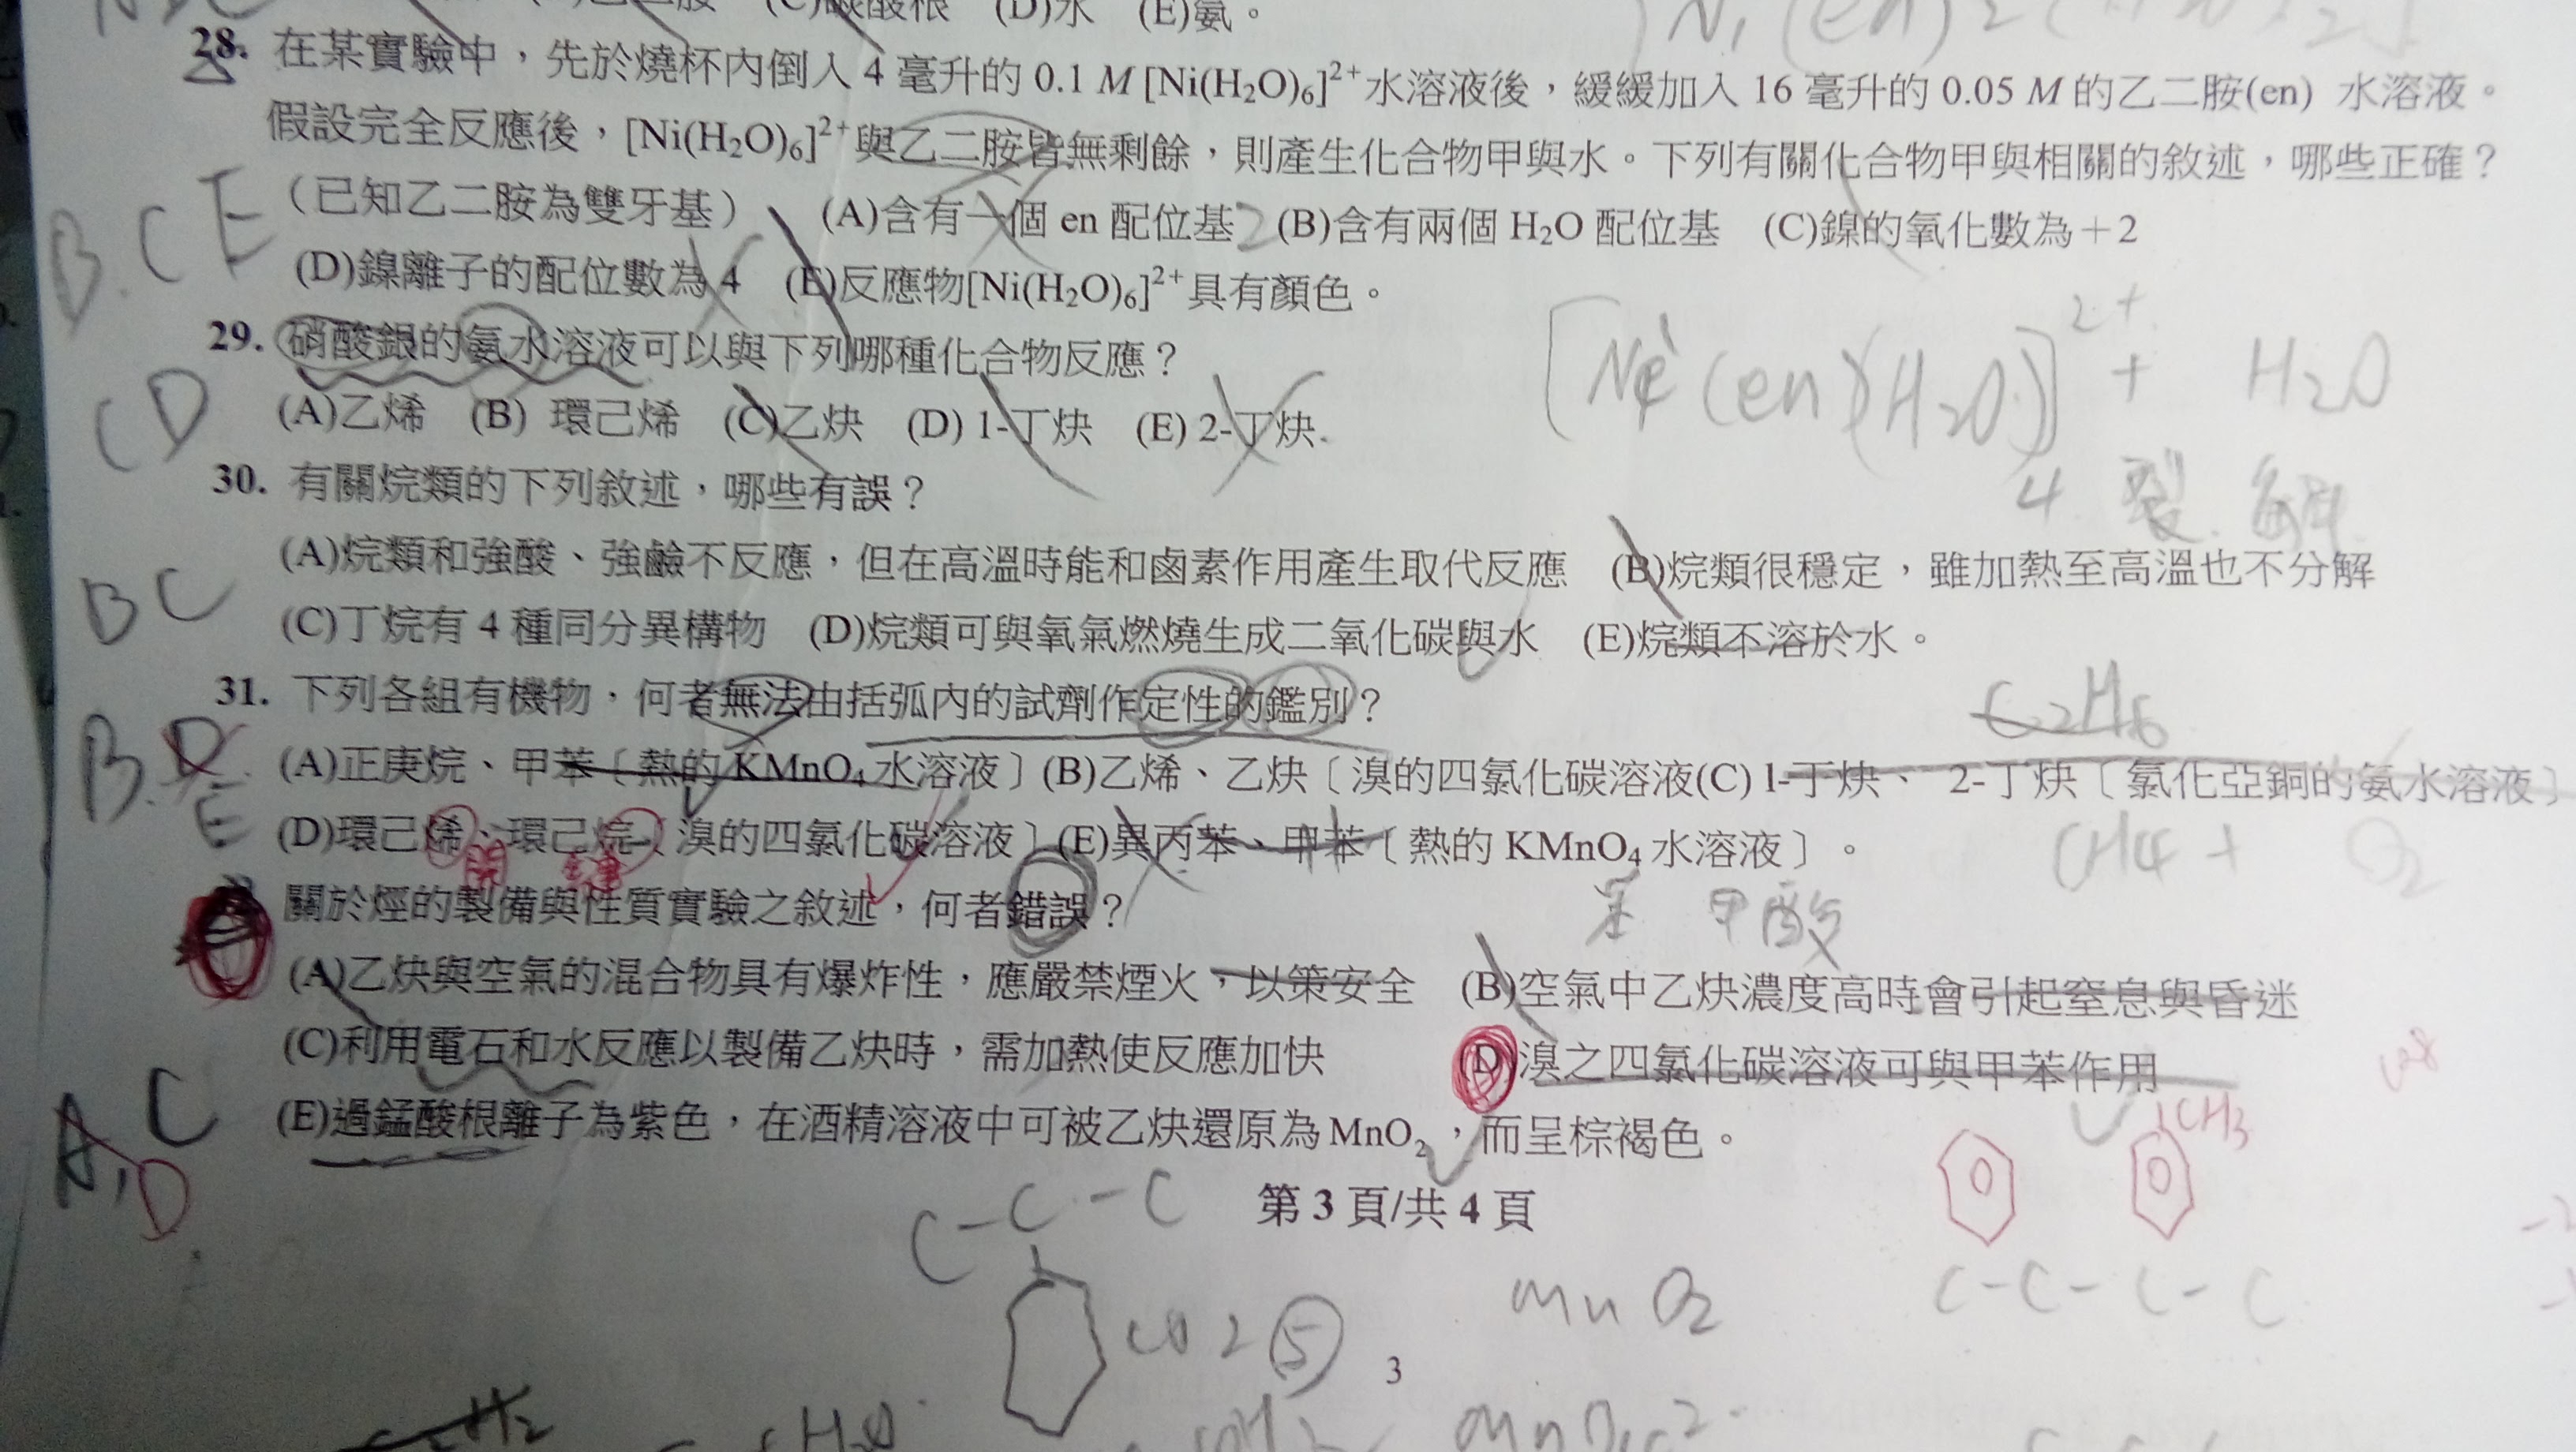 (D)水 (E)氨。
28. 在某實驗中，先於燒杯內倒入 4 毫升的 0.1 M [Ni(H₂O)₆]²⁺水溶液後，緩緩加入 16 毫升的 0.05 M 的乙二胺(en) 水溶液。
假設完全反應後，[Ni(H₂O)₆]²⁺與乙二胺皆無剩餘，則產生化合物甲與水。下列有關化合物甲與相關的敘述，哪些正確？
B.CE
（已知乙二胺為雙牙基） (A)含有一個 en 配位基 2 (B)含有兩個 H₂O 配位基 (C)鎳的氧化數為＋2
(D)鎳離子的配位數為 4 (E)反應物[Ni(H₂O)₆]²⁺具有顏色。
29. 硝酸銀的氨水溶液可以與下列哪種化合物反應？
CD
(A)乙烯 (B) 環己烯 (C)乙炔 (D) 1-丁炔 (E) 2-丁炔.
[Ni(en)(H₂O)]²⁺ + H₂O
4
30. 有關烷類的下列敘述，哪些有誤？
裂解
BC
(A)烷類和強酸、強鹼不反應，但在高溫時能和鹵素作用產生取代反應 (B)烷類很穩定，雖加熱至高溫也不分解
(C)丁烷有 4 種同分異構物 (D)烷類可與氧氣燃燒生成二氧化碳與水 (E)烷類不溶於水。
31. 下列各組有機物，何者無法由括弧內的試劑作定性的鑑別？
C₂H₆
B.D
E
(A)正庚烷、甲苯〔熱的 KMnO₄ 水溶液〕(B)乙烯、乙炔〔溴的四氯化碳溶液(C) 1-丁炔、 2-丁炔〔氯化亞銅的氨水溶液〕
(D)環己烯、環己烷〔溴的四氯化碳溶液〕(E)異丙苯、甲苯〔熱的 KMnO₄ 水溶液〕。
CH4 + O₂
關於烴的製備與性質實驗之敘述，何者錯誤？
苯甲酸
(A)乙炔與空氣的混合物具有爆炸性，應嚴禁煙火，以策安全 (B)空氣中乙炔濃度高時會引起窒息與昏迷
(C)利用電石和水反應以製備乙炔時，需加熱使反應加快 (D)溴之四氯化碳溶液可與甲苯作用
A,C
D
(E)過錳酸根離子為紫色，在酒精溶液中可被乙炔還原為 MnO₂，而呈棕褐色。
CH₃
第 3 頁/共 4 頁
C-C-C
C-C-C-C
CO2 5
MnO₂
3